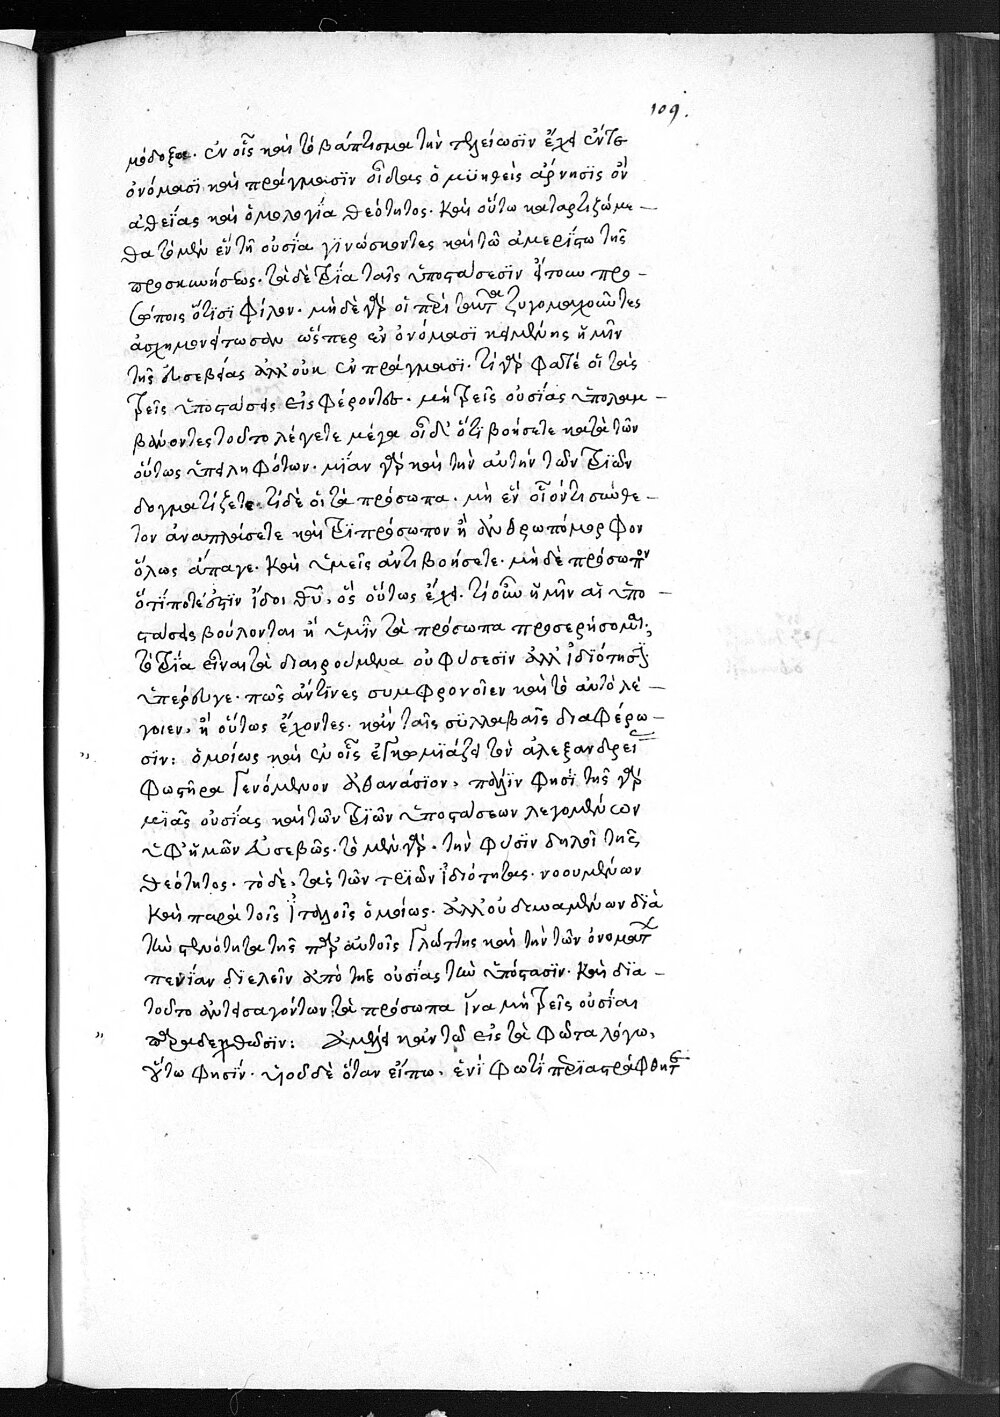 109.
μόδοξα. ἐν οἷς καὶ τὸ βάπτισμα τὴν τελείωσϊν ἔχει ἔν τε
ὀνόμασϊ καὶ πράγμασϊν οἶδας ὁ μϋηθεὶς ἄρνησϊς ὂν
ἀθεΐας καὶ ὁμολογΐα θεότητος. Καὶ οὕτω καταρτιζώμε —
θα τὸ μὲν ἓν τῆ οὐσία γϊνώσκοντες καὶ τῶ ἀμερίϛω τῆς
προσκυνήσεως. τὰ δὲ τρΐα ταῖς ὑποϛάσεσϊν εἴτουν προ —
σώποις ὅ τισϊ φίλον. μὴδὲ γὰρ οἱ περὶ ταῦτα ζυγομαχοῦντες
ἀσχημονείτωσαν ὥσπερ ἐν ὀνόμασϊ κειμένης ἡμῖν
τῆς εὐσεβείας ἀλλ οὐκ ἐν πράγμασϊ. τί γὰρ φατέ οἱ τὰς
τρεῖς ὑποϛάσεις εἰσφέροντες. μὴ τρεῖς οὐσίας ὑπολαμ —
βάνοντες τοῦτο λέγετε μέγα οἶδ' ὅτϊ βοήσετε κατὰ τῶν
οὕτως ὑπειληφότων. μΐαν γὰρ καὶ τὴν αὐτὴν τῶν τρϊῶν
δογματίζετε. τί δὲ οἱ τὰ πρόσωπα. μὴ ἓν οἷόν τι σύνθε —
τον ἀναπλάσετε καὶ τρϊπρόσωπον ἢ ἀνθρωπόμορφον
ὅλως ἄπαγε. Καὶ ὑμεῖς ἀντϊβοήσετε. μὴδὲ πρόσωπον
ὅτΐποτέ ἐϛϊν ἴδοι θῦ, ὃς οὕτως ἔχει. τί οὖν ἡμῖν αἱ ὑπο —
ϛάσεις βούλονται ἢ ὑμῖν τὰ πρόσωπα προσερήσομαι;
τὸ τρΐα εἶναι τὰ διαιρούμενα οὐ φύσεσϊν ἀλλ ἰδϊότησι.
ὑπέρευγε. πῶς ἄν τϊνες συμφρονοῖεν καὶ τὸ αὐτὸ λέ —
γοιεν, ἢ οὕτως ἔχοντες. κἂν ταῖς σϋλλαβαῖς διαφέρω —
σϊν: ὁμοίως καὶ ἐν οἷς ἐγκωμϊάζει τὸν ἀλεξανδρεί
φωϛῆρα γενόμενον ἀθανάσϊον, πάλϊν φησὶ τῆς γὰρ
μϊᾶς οὐσίας καὶ τῶν τρϊῶν ὑποϛάσεων λεγομένων
ὑφ ἡμῶν εὐσεβῶς. τὸ μὲν γὰρ. τὴν φύσϊν δηλοῖ τῆς
θεότητος. τὸ δὲ, τὰς τῶν τρϊῶν ἰδϊότητας. νοουμένων
Καὶ παρὰ τοῖς ἰταλοῖς ὁμοίως. ἀλλ οὐ δυναμένων διὰ
τὴν ϛενότητα τῆς παρ αὐτοῖς γλώττης καὶ τὴν τῶν ὀνομάτων
πενΐαν δϊελεῖν ἀπὸ τῆς οὐσίας τὴν ὑπόϛασϊν. Καὶ δϊα —
τοῦτο ἀντεισαγόντων τὰ πρόσωπα ἵνα μὴ τρεῖς οὐσίαι
παραδεχθῶσϊν: ἀμέλει κἂν τῶ εἰς τὰ φῶτα λόγω,
οὕτω φησΐν. θεοῦ δὲ ὅταν εἴπω, ἑνὶ φωτὶ περϊαϛράφθητε